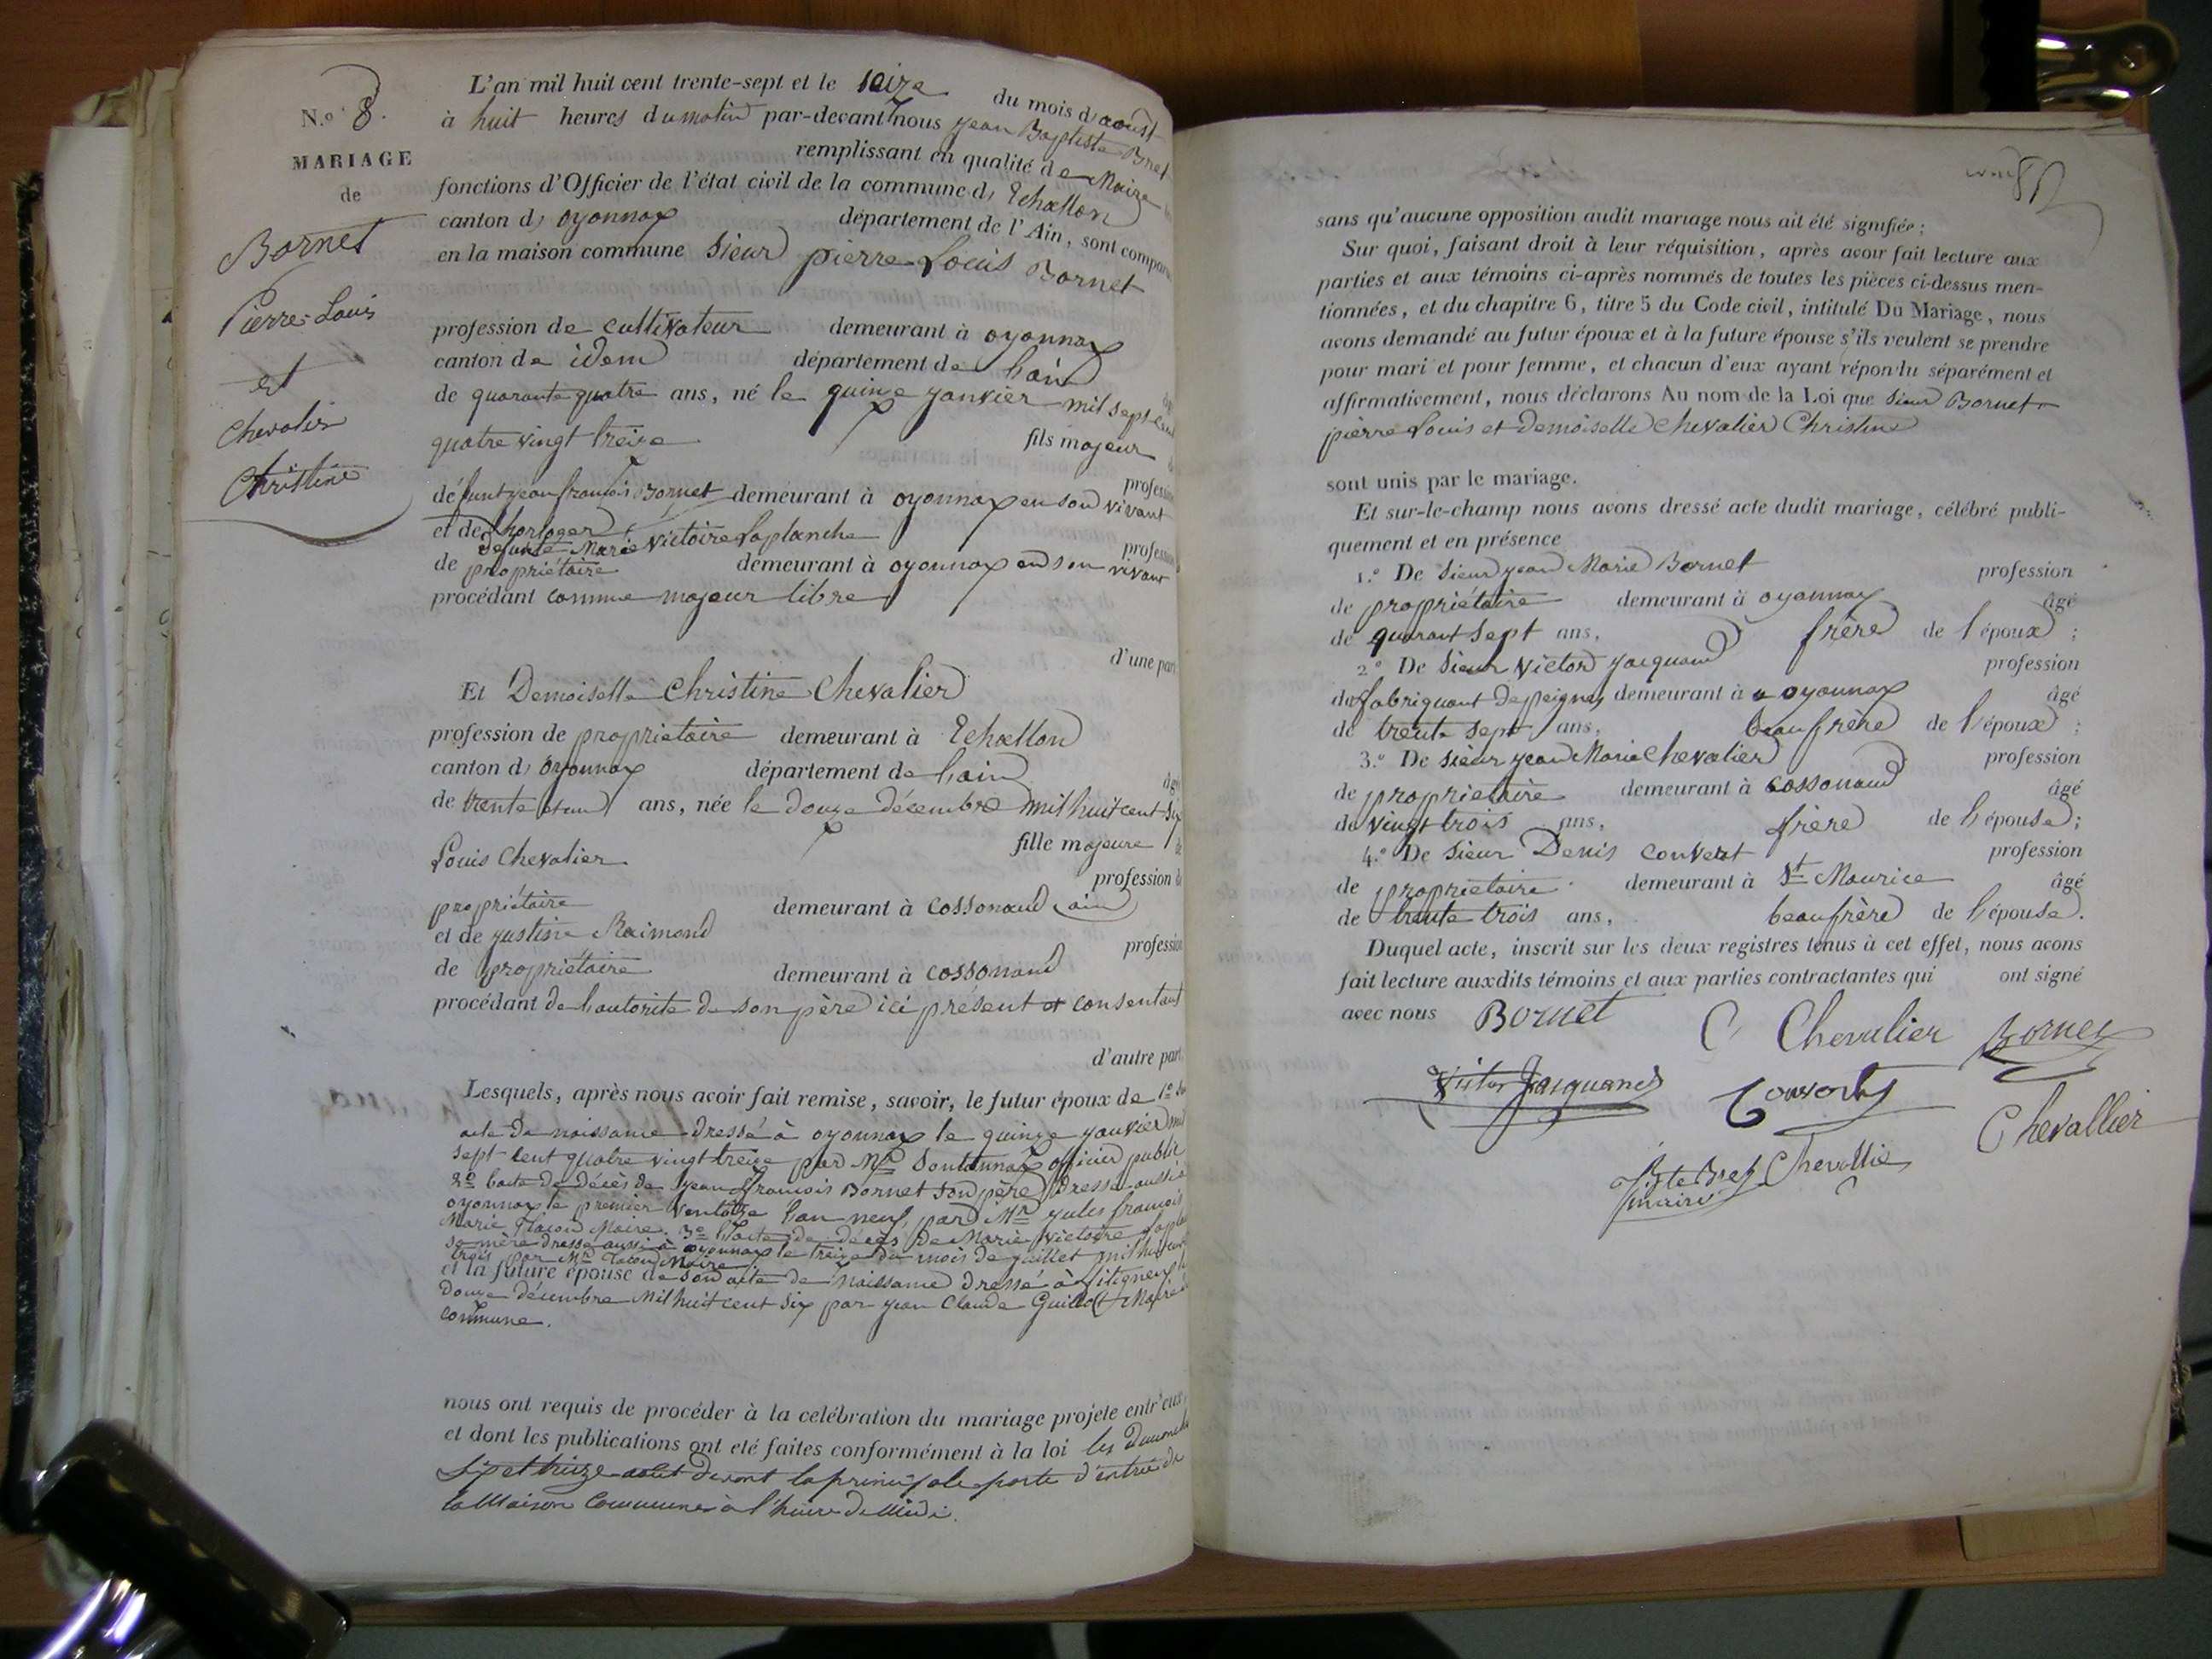 N.º 8.
MARIAGE
de
Bornet
Pierre-Louis
et
Chevalier
Christine
L'an mil huit cent trente-sept et le seize du mois d'aoust
à huit heures du matin par-devant nous jean Baptiste Bret
remplissant en qualité de Maire les
fonctions d'Officier de l'état civil de la commune d' Echallon
canton d' oyonnax département de l'Ain, sont comparus
en la maison commune Sieur pierre Louis Bornet
profession de cultivateur demeurant à oyonnax
canton de idem département de l'ain
de quarante quatre ans, né le quinze janvier mil sept cent
quatre vingt treize fils majeur
défunt jean françois Bornet demeurant à oyonnax en son vivant profession
et de horloger
defunte Marie Victoire Laplanche profession
de propriétaire demeurant à oyonnax en son vivant
procédant comme majeur libre
d'une part
Et Demoiselle Christine Chevalier
profession de propriétaire demeurant à Echallon
canton d' oyonnax département de l'ain
de trente et un ans, née le douze décembre mil huit cent six
fille majeure
Louis Chevalier profession de
propriétaire demeurant à cossonand ain
et de justine Raimond profession
de propriétaire demeurant à cossonand
procédant de l'autorité de son père ici présent et consentant
d'autre part
Lesquels, après nous avoir fait remise, savoir, le futur époux de 1.º son
acte de naissance dressé à oyonnax le quinze janvier mil
sept cent quatre vingt treize par Mr officier public
2º l'acte de décès de jean françois Bornet son père dressé aussi à
oyonnax le premier ventose l'an neuf, par Mr jules françois
Marie Maire. 3º l'acte de décès de Marie Victoire
sa mère dressé aussi à oyonnax le treize du mois de juillet mil huit cent
trois par Mr Maire
et la future épouse de son acte de naissance dressé à
douze décembre mil huit cent six par jean Claude Guillot Maire
commune.
nous ont requis de procéder à la celébration du mariage projeté entr'eux,
et dont les publications ont eté faites conformément à la loi les dimanches
six et treize aout devant la principale porte d'entrée de
la Maison Commune à l'heure de Midi.
sans qu'aucune opposition audit mariage nous ait été signifiée ;
Sur quoi, faisant droit à leur réquisition, après avoir fait lecture aux
parties et aux témoins ci-après nommés de toutes les pièces ci-dessus men-
tionnées, et du chapitre 6, titre 5 du Code civil, intitulé Du Mariage, nous
avons demandé au futur époux et à la future épouse s'ils veulent se prendre
pour mari et pour femme, et chacun d'eux ayant répondu séparément et
affirmativement, nous déclarons Au nom de la Loi que Sieur Bornet
pierre Louis et Demoiselle Chevalier Christine
sont unis par le mariage.
Et sur-le-champ nous avons dressé acte dudit mariage, célébré publi-
quement et en présence
1.º De Sieur jean Marie Bornet profession
de propriétaire demeurant à oyonnax âgé
de quarant sept ans, frère de l'époux ;
2.º De Sieur Victor jacquand profession
de fabriquant de peignes demeurant à oyonnax âgé
de trente sept ans, beaufrère de l'époux ;
3.º De Sieur jean Marie Chevalier profession
de propriétaire demeurant à cossonand âgé
de vingt trois ans, frère de l'épouse ;
4.º De Sieur Denis convert profession
de propriétaire demeurant à St Maurice âgé
de trente trois ans, beaufrère de l'épouse.
Duquel acte, inscrit sur les deux registres tenus à cet effet, nous avons
fait lecture auxdits témoins et aux parties contractantes qui ont signé
avec nous Bornet C Chevalier Bornet
Victor Jacquand Convert
Chevallier
Bte Bret Chevallier
maire